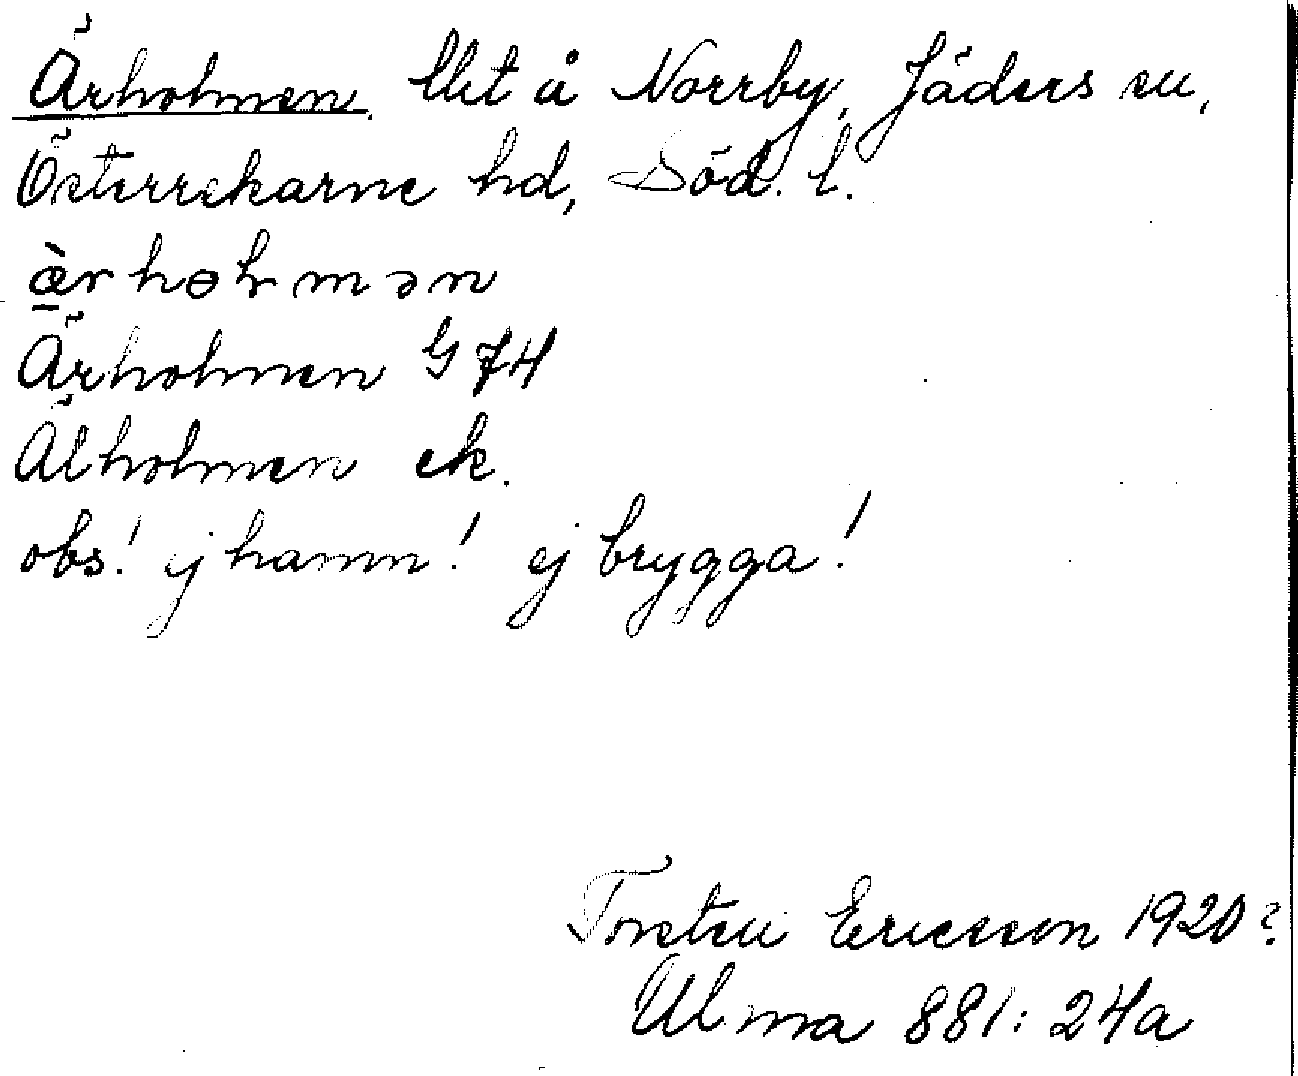 Ärholmen, Utt å Norrby, Jäders sn,
Österrekarne hd, Söd. l.
æ̀rhɵlmən
Ärholmen G 74
Älholmen ek.
obs! ej hamn! ej brygga!
Torsten Ericsson 1920?
Ulma 881: 24a